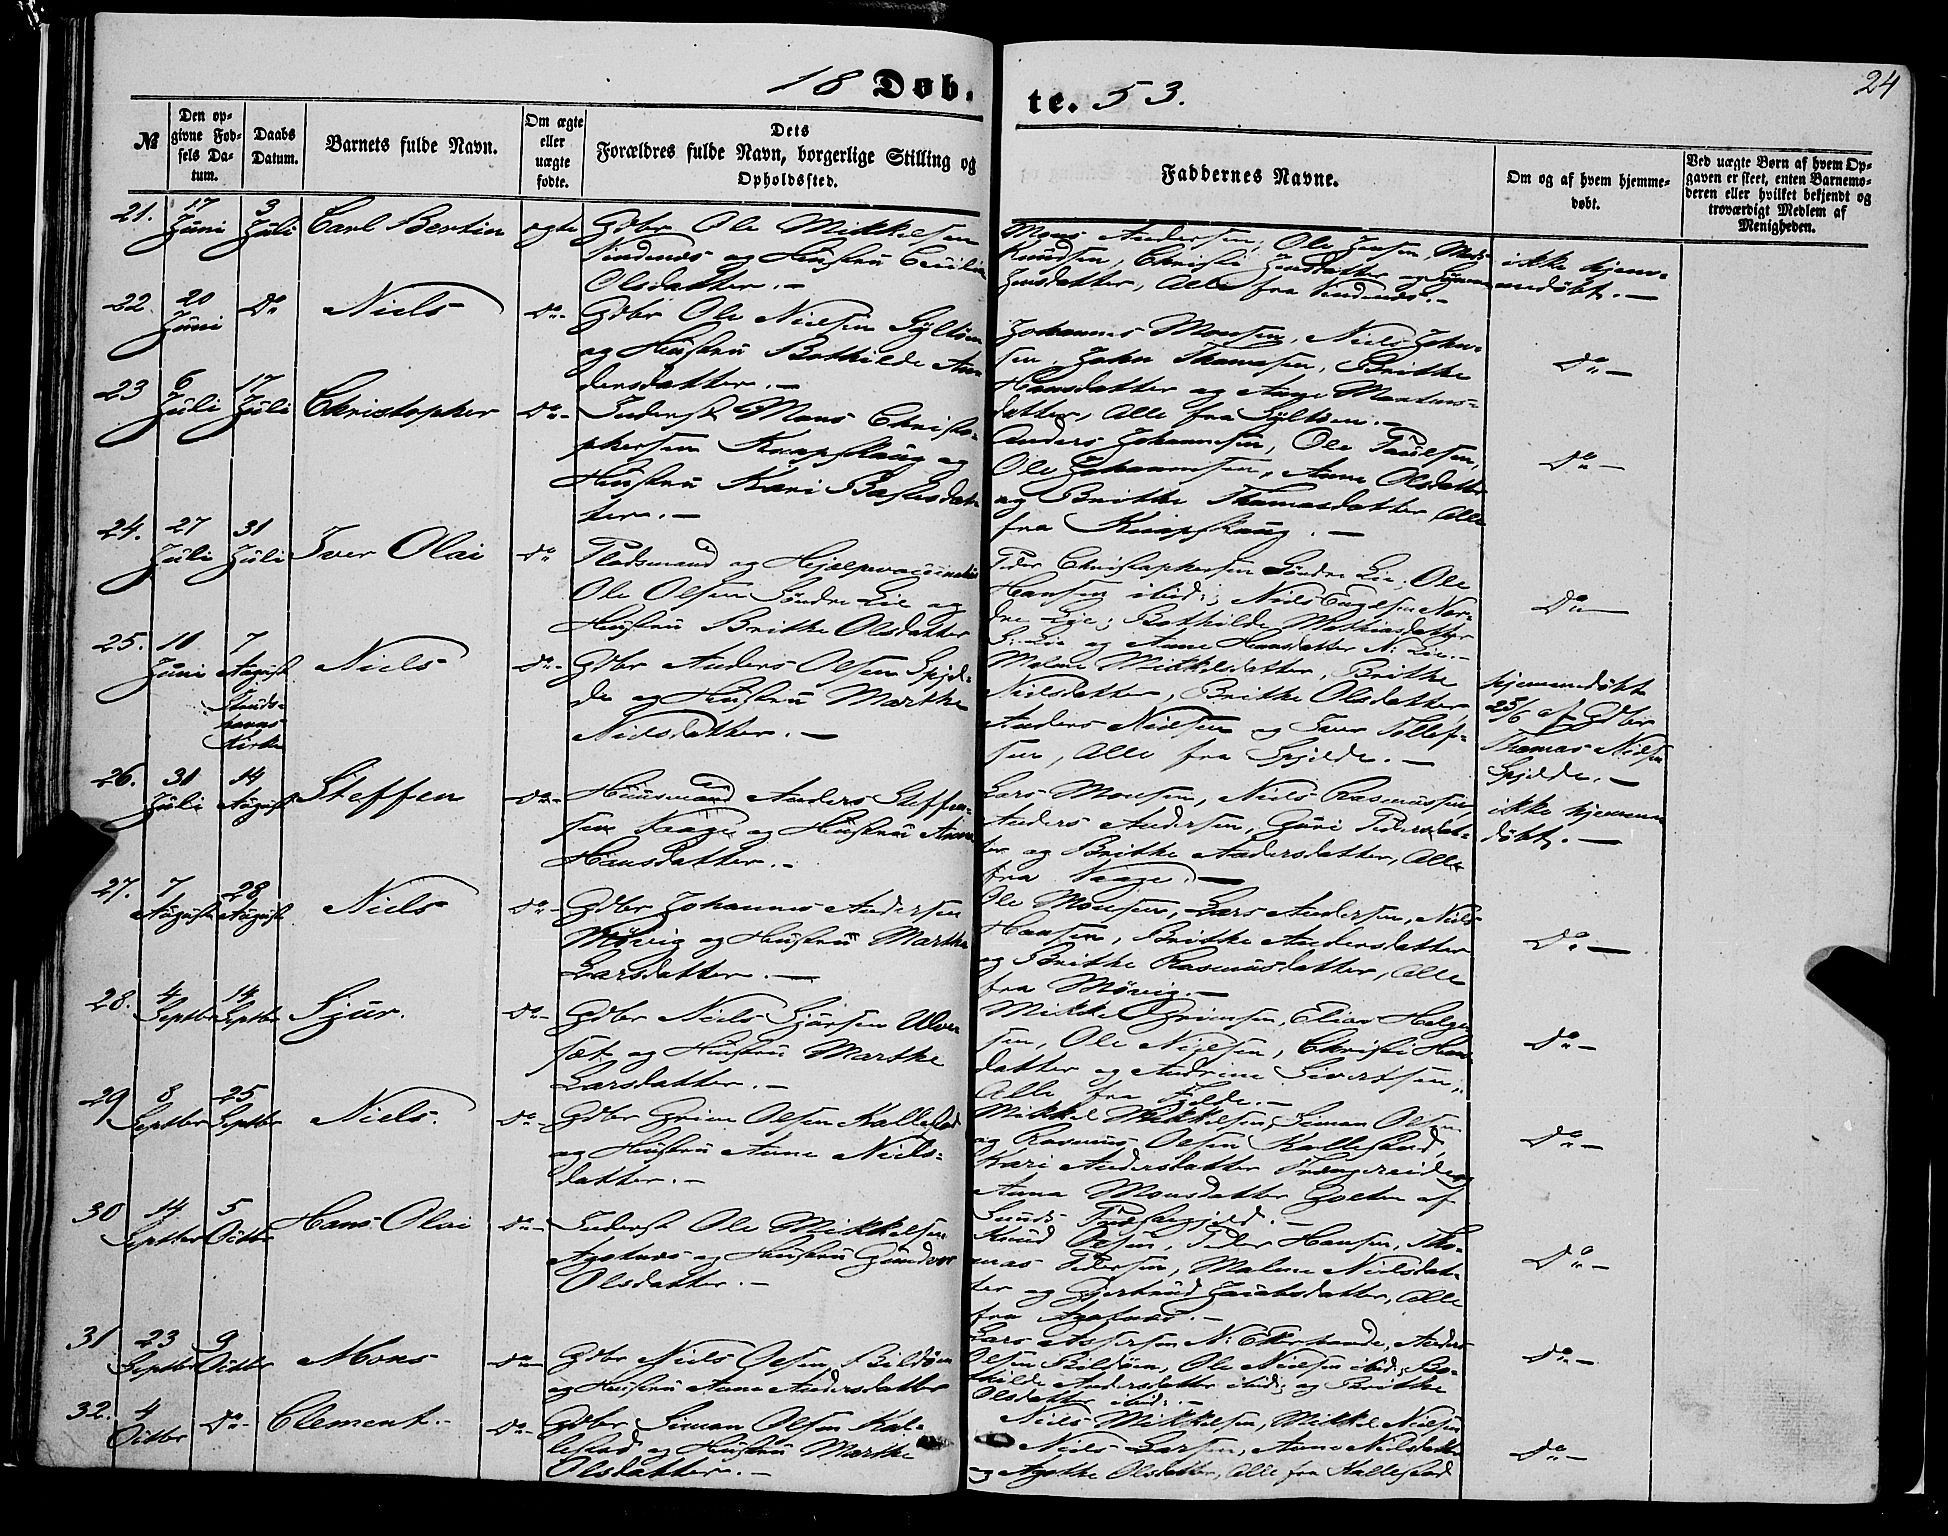 24
18 Døb- te. 53.
№
Den op-
givne Fød-
sels Da-
tum.
Daabs
Datum.
Barnets fulde Navn.
Om ægte
eller
uægte
fødte.
Dets
Forældres fulde Navn, borgerlige Stilling og
Opholdssted.
Faddernes Navne.
Om og af hvem hjemme-
døbt.
Ved uægte Børn af hvem Op-
gaven er skeet, enten Barnemo-
deren eller hvilket bekjendt og
troværdigt Medlem af
Menigheden.
21. 17 Juni 3 Juli Carl Bertin ægte Gdbr Ole Mikkelsen
Vindenæs og Hustru Cecilia
Olsdatter.-
Mons Andersen, Ole Jensen, Mads
Knudsen, Christi Jensdatter og
Jensdatter, Alle fra Vindenæs.-
ikke hjem-
medøbt.-
22. 20 Juni Do Niels Do- Gdbr Ole Nielsen Syltøen
og Hustru Bothilde An-
dersdatter.-
Johannes Monsen, Niels John-
sen, John Thomasen, Brithe
Hansdatter og Anne Martins-
datter, Alle fra Syltøen.-
Do-
23 6 Juli 17 Juli Christopher Do- Inderst Mons Christo-
phersen Knapskaug og
Hustru Kari Bastesdat-
ter.-
Anders Johannesen, Ole Paulsen,
Ole Johannesen, Anne Olsdatter
og Brithe Thomasdatter Alle
fra Knapskaug.-
Do-
24. 27 Juli 31 Juli Iver Olai Do Pladsmand og Hjælpvaccinatør
Ole Olsen Søndre Lie og
Hustru Brithe Olsdatter
Peder Christophersen Søndre Lie, Ole
Hansen ibid:, Niels Engelsen Nor-
dre Lie, Bothilde Mathiasdatter
S: Lie og Anne Hansdatter N: Lie.-
Do-
25. 10 Juni 7 August
Sunds-
havns-
Kirke
Niels Do- Gdbr Anders Olsen Spjel-
de og Hustru Marthe
Nielsdatter.-
Malene Mikkelsdatter, Brithe
Nielsdatter, Brithe Olsdatter,
Anders Nielsen og Iver Tollef-
sen, Alle fra Spjelde.-
hjemmedøbt
25/6 af Gdbr
Thomas Nielsen
Spjelde.-
26. 31 Juli 14 August Steffen Do- Huusmand Anders Steffen-
sen Vaage og Hustru Anna
Hansdatter.-
Lars Monsen, Niels Rasmussen,
Anders Andersen, Guri Pedersdat-
ter og Brithe Andersdatter, Alle
fra Vaage.-
ikke hjemme
døbt.-
27. 7 August 28 August Niels Do- Gdbr Johannes Andersen
Møvig og Hustru Marthe
Larsdatter.-
Ole Monsen, Lars Andersen, Niels
Hansen, Brithe Andersdatter
og Brithe Rasmusdatter, Alle
fra Møvig.-
Do-
28. 4 Septbr 14 Septbr Sjur. Do- Gdbr Niels Sjursen Ulve
sæt og Hustru Marthe
Larsdatter.-
Mikkel Grimsen, Elias Helge
sen, Ole Nielsen, Christi Hans
datter og Andrine Sivertsen,
Alle fra Fjelde.-
Do-
29 8 Septbr 25 Septbr Niels. Do- Gdbr Grim Olsen Kallestad
og Hustru Anne Niels-
datter.-
Mikkel Mikkelsen, Simon Olsen
og Rasmus Olsen Kallestad,
Kari Andersdatter Trængereid og
Anna Monsdatter Golten af
Sunds Præstegjeld.-
Do-
30 14 Septbr 5 Octbr Hans Olai Do- Inderst Ole Mikkelsen
Agotnæs og Hustru Gundvor
Olsdatter.-
Knud Olsen, Peder Hansen, Tho-
mas Pedersen, Malene Nielsdat-
ter og Gjertrud Jacobsdatter, Alle
fra Agotnæs.-
Do-
31 23 Septbr 9 Octbr Mons Do- Gdbr Niels Olsen Bildøen
og Hustru Anne Andersdatter
Lars Assersen N: Ekerhovde, Anders
Olsen Bildøen, Ole Nielsen ibid:, Bo-
thilde Andersdatter ibid: og Brithe
Olsdatter ibid:.-
Do-
32. 4 Octbr Do- Clement.- Do- Gdbr Simon Olsen Kal-
lestad og Hustru Marthe
Olsdatter.-
Niels Mikkelsen, Mikkel Nielsen
Niels Larsen, Anne Nielsdatter
og Agathe Olsdatter, Alle fra Kallestad
Do-